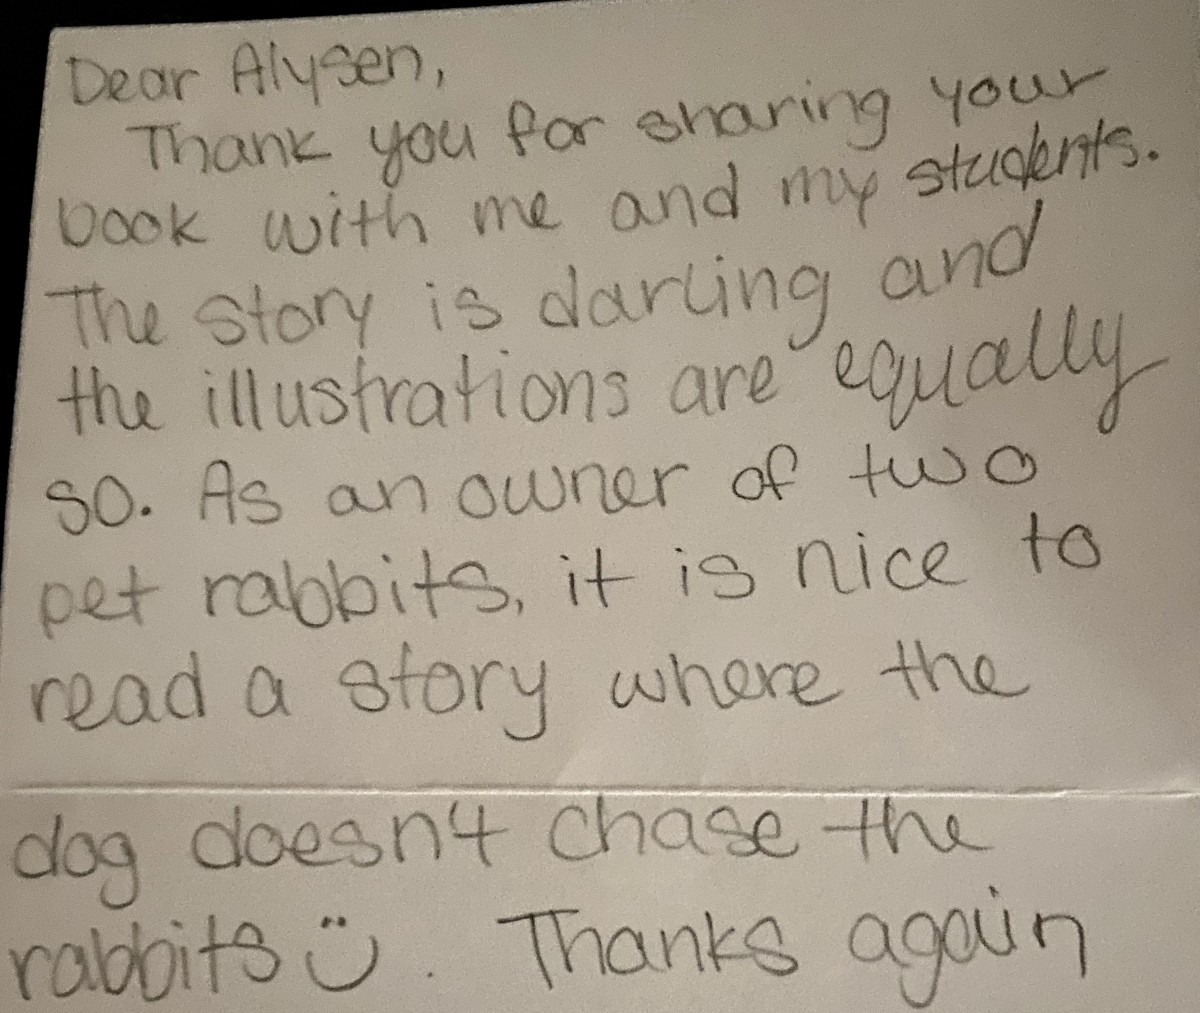 Dear Alysen,
Thank you for sharing your
book with me and my students.
The story is darling and
the illustrations are equally
so. As an owner of two
pet rabbits, it is nice to
read a story where the
dog doesn't chase the
rabbits ü. Thanks again